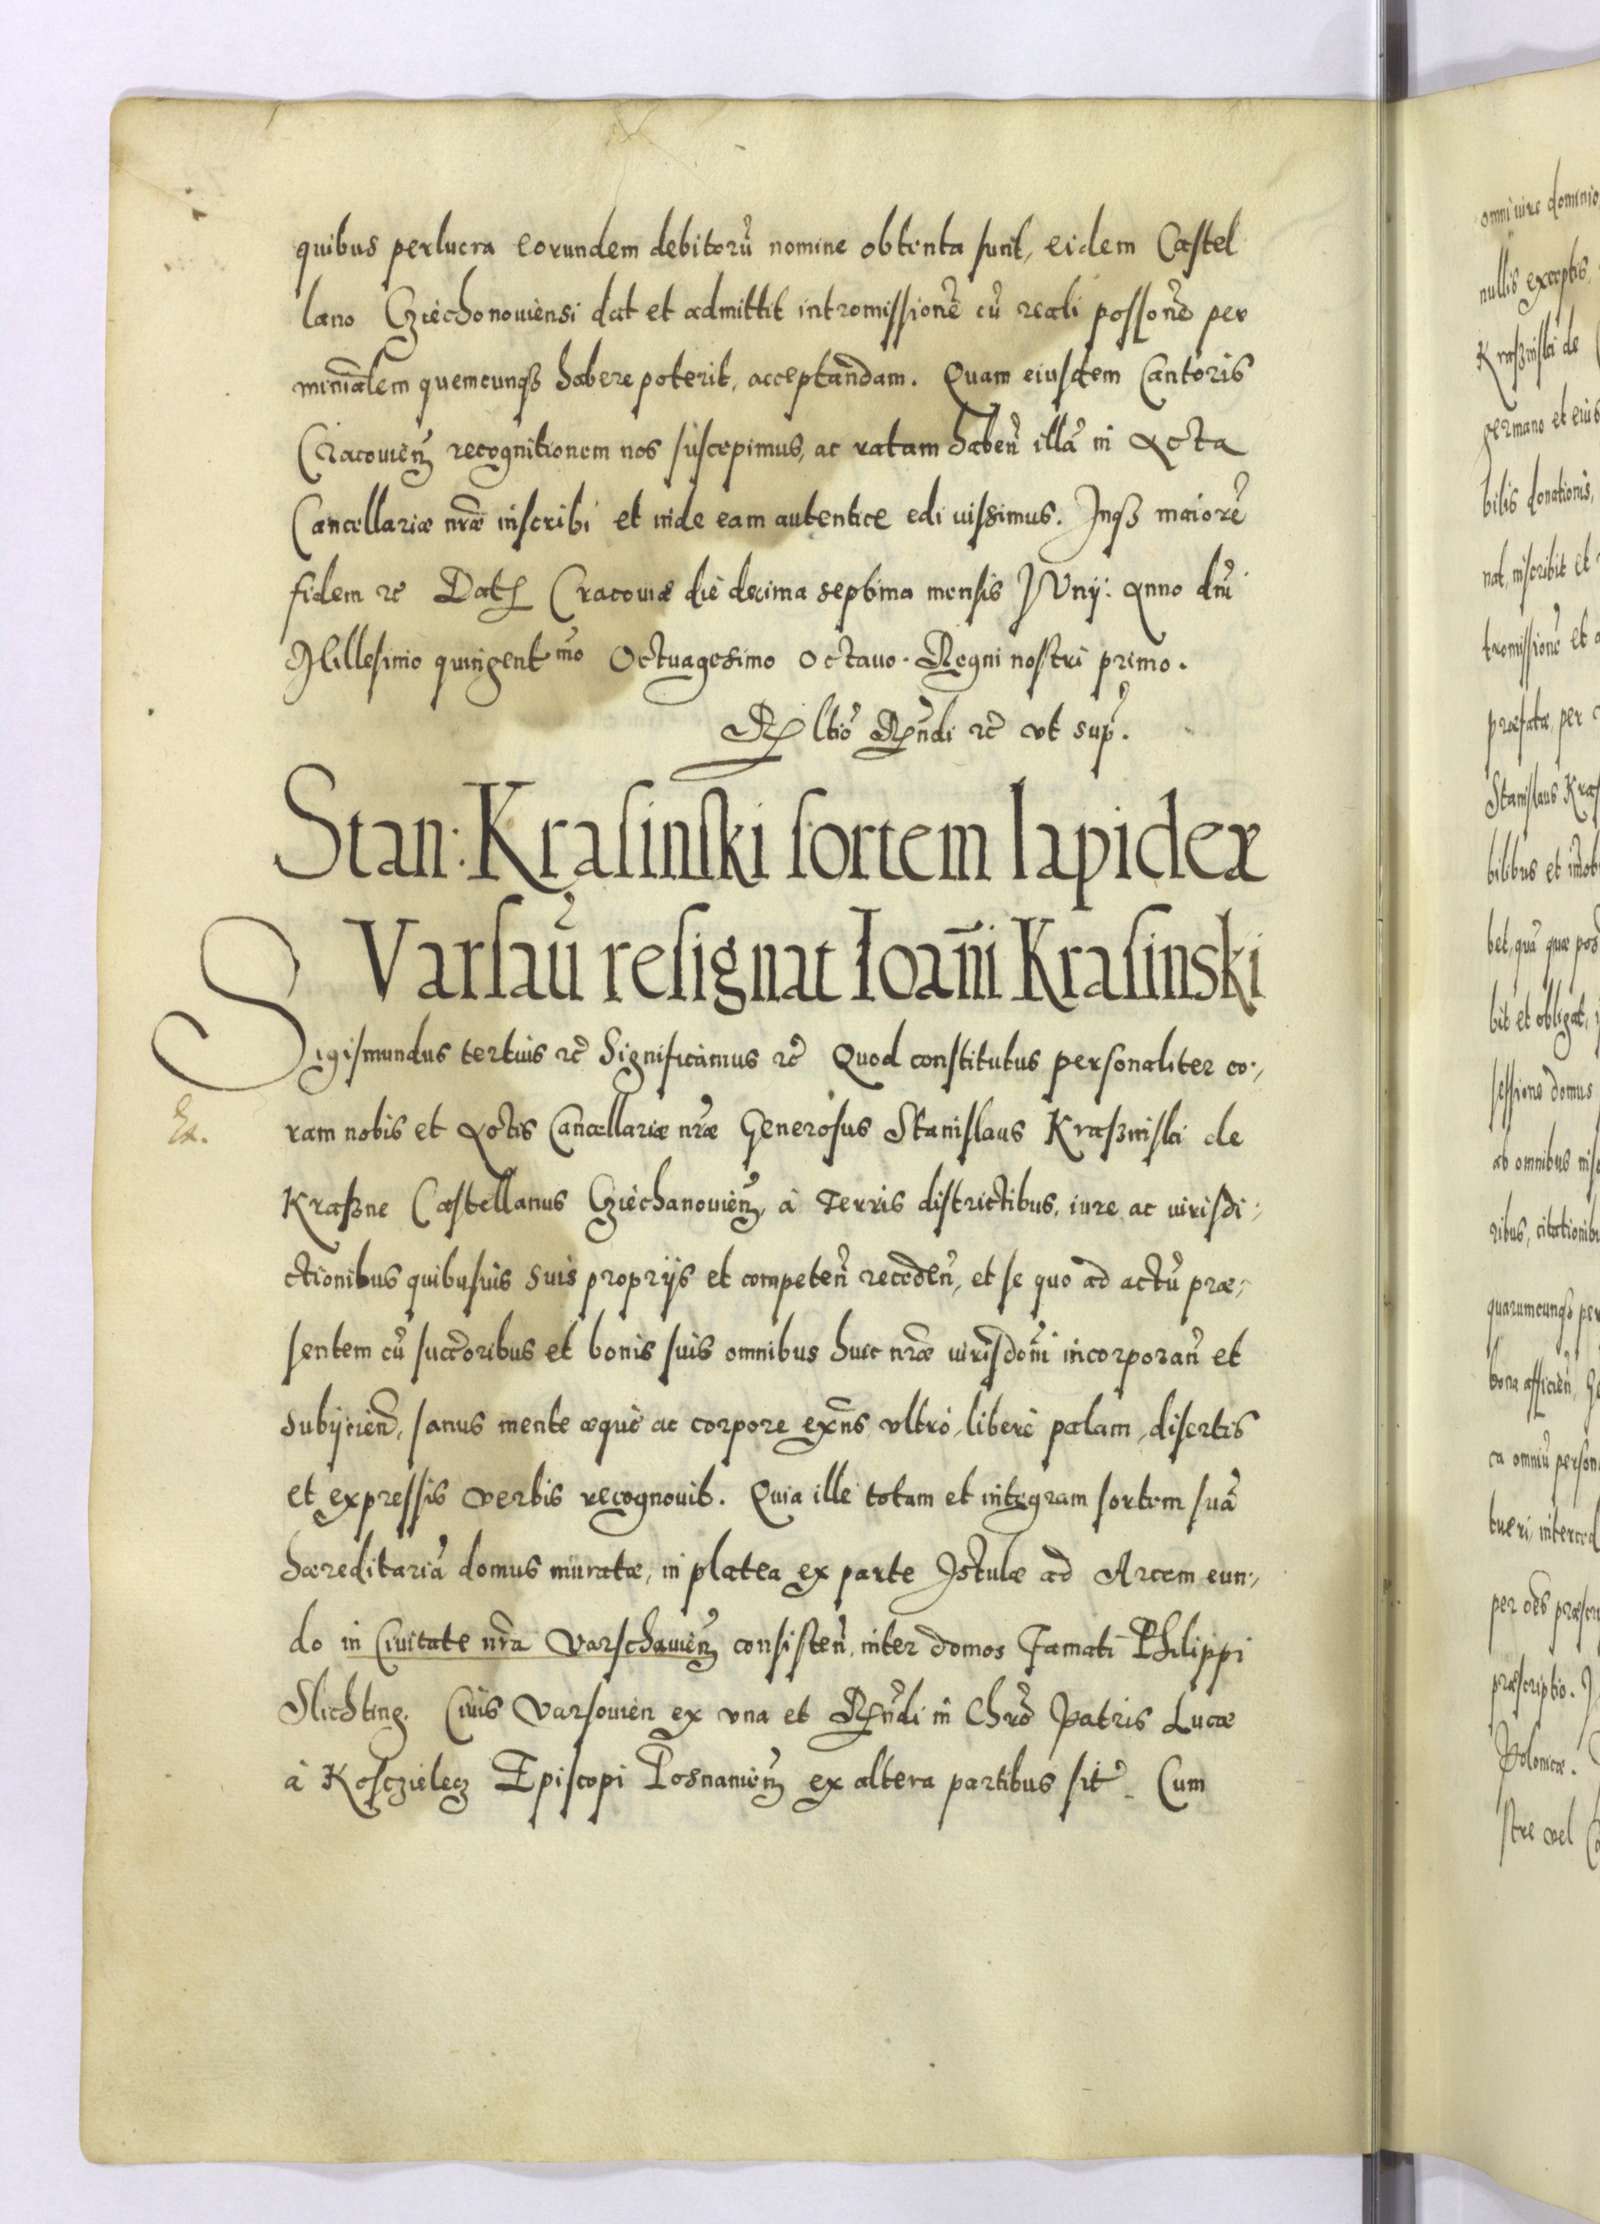 quibus perlucra eorundem debitorũ nomine obtenta sunt, eidem Castel
lano Cziechonouiensi dat et admittit intromissionẽ cũ reali possonẽ per
minĩalem quemcunqȝ habere poterit, acceptandam. Quam eiusdem Cantoris
Cracouieñ recognitionem nos suscepimus, ac ratam habeñ illã in Acta
Cancellariæ nr̃æ inscribi et inde eam autentice edi iussimus. Inqȝ maiorẽ
fidem etc̃ Dat Cracouiæ die decima septima mensis Junij: Anno dñi
Millesimo quingentmo Octuagesimo octauo. Regni nostri primo.
R̃ltiõ Rñdi etc̃ vt sup̃.
Stan: Krasinski sortem lapideæ
Varsaũ resignat Ioañi Krasinski
Sigismundus tertius etc̃ Significamus etc̃ Quod constitutus personaliter co-
Ex.
ram nobis et Actis Cancellariæ nr̃æ Generosus Stanislaus Kraßinski de
Kraßne Castellanus Cziechanouieñ, à Terris districtibus, iure ac iurisdi-
ctionibus quibusuis suis proprijs et competeñ recedeñ, et se quo ad actũ præ-
sentem cũ succ̃oribus et bonis suis omnibus huic nr̃æ iurisdoñi incorporañ et
subijcieñ, sanus mente æquè ac corpore exñs vltrò, liberè palam, disertis
et expressis verbis recognouit. Quia ille totam et integram sortem suã
hæreditariã domus muratæ, in platea ex parte Istulæ ad Arcem eun-
do in Ciuitate nr̃a Varschauieñ consisteñ, inter domos Famati Philippi
Slichting. Ciuis Varsouien ex vna et Rñdi in Chrõ Patris Lucæ
à Kosczielecz Episcopi Posnanieñ ex altera partibus sit̃. Cum
omni iure dominio
nullis exceptis,
Kraßinski de
germano et eius
bilis donationis,
nat, inscribit et
tromissionẽ et a
præfatæ per
Stanislaus Kras
bilibus et im̃ob
bet, quã quæ pos
bit et obligat,
sessione domus
ab omnibus
ribus, citationib
quarumcunqȝ per
bona afficieñ,
ca omniũ person
tueri, interced
per oẽs præscri
præscriptio.
Poloniæ.
stre vel